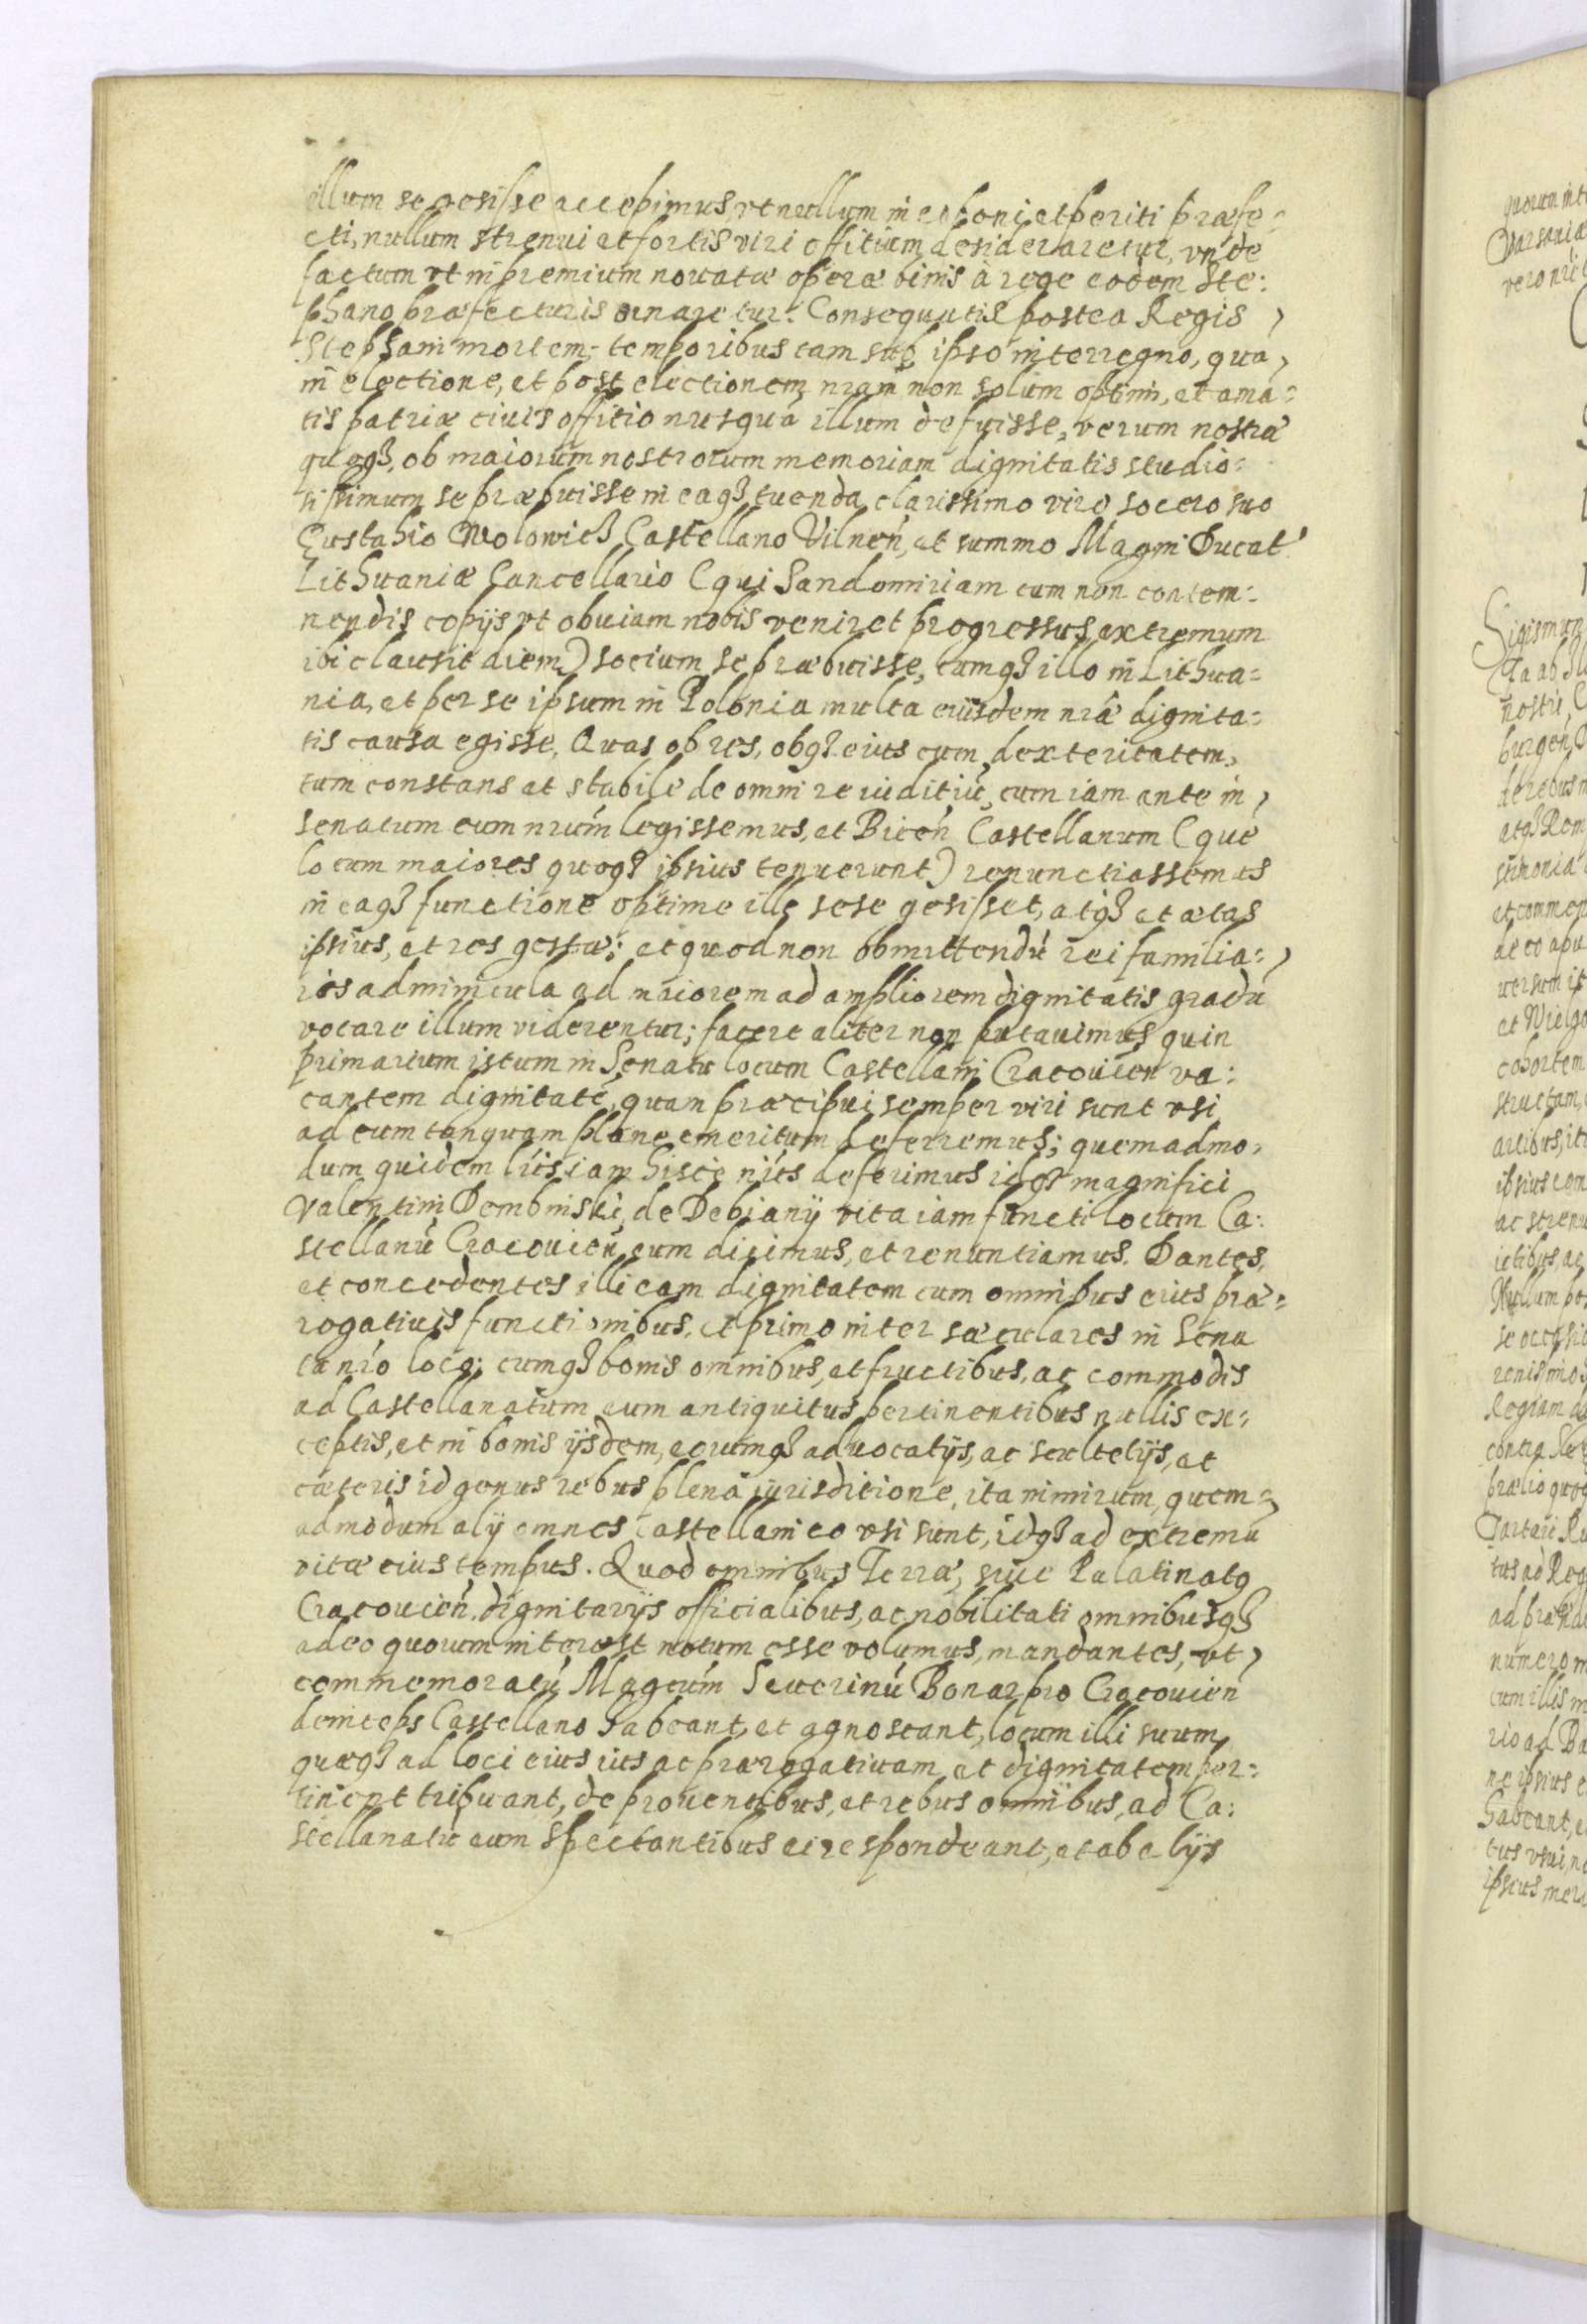 illum se gesisse accepimus, vt nullum in eo boni, et periti præfe-
cti, nullum strenui et fortis viri offitium desideraretur, vnde
factum vt in premium nouatæ operæ binis à rege eodem Ste:
phano præfecturis ornaretur. Consequutis postea Regis
Stephani mortem temporibus tam sub ipso interregno, quā
in electione, et post electionem nrām non solum optimi, et aman
tis patriæ ciuis offitio nusquā illum defuisse, verum nostræ
quoqȝ ob maiorum nostrorum memoriam dignitatis studio:
sissimum se præbuisse in eaqȝ tuenda clarissimo viro socero suo
Eustahio Wolowicz Castellano Vilneń, et summo Magni Ducat
Lithuaniæ Cancellario (qui Sandomiriam cum non contem:
nendis copijs vt obuiam nobis veniret progressus extremum
ibi clausit diem) socium se præbuisse, cumqȝ illo in Lithua-
nia, et per se ipsum in Polonia multa eiusdem nræ dignita-
tis causa egisse. Quas ob res, obqȝ eius cum dexteritatem,
tum constans et stabile de omni re iuditiū, cum iam ante in
senatum eum nrūm legissemus, et Biceń Castellanum (quē
locum maiores quoqȝ ipsius tenuerunt) renunctiassemus
in eaqȝ functione optime ille sese gesisset, atqȝ et ætas
ipsius, et res gestæ; et quod non obmittendū rei familia:
ris adminicula ad maiorem ad ampliorem dignitatis gradū
vocare illum viderentur; facere aliter non putauimus quin
primarium istum in Senatu locum Castellani Cracouień va:
cantem dignitatē, quam præcipui semper viri sunt vsi
ad eum tanquam plane emeritum deferremus; quemadmo
dum quidem lrīs iam hisce nrīs deferimus idqȝ magnifici
Valentini Dembinski de Debiany vita iam functi locum Ca:
stellanū Cracouień eum dicimus, et renuntiamus. Dantes,
et concedentes illi eam dignitatem cum omnibus eius præ-
rogatiuis functionibus, et primo inter sæculares in Sena
tu nrō loco; cumqȝ bonis omnibus, et fructibus, ac commodis
ad Castellanatum eum antiquitus pertinentibus nullis ex:
ceptis, et in bonis ijsdem, eorumqȝ aduocatijs, ac scultetijs, et
cæteris id genus rebus plenā iurisditione, ita nimirum, quem-
admodum alij omnes Castellani eo vsi sunt, idqȝ ad extremū
vitæ eius tempus. Quod omnibus Terræ, siue Palatinato
Cracouień. dignitarijs officialibus, ac nobilitati omnibusqȝ
adeo quorum interest notum esse volumus, mandantes, vt
commemoratū Magcūm Seuerinū Bonar pro Cracouień
deinceps Castellano habeant, et agnoscant, locum illi suum,
quæqȝ ad loci eius ius ac prærogatiuam, et dignitatem per:
tinent tribuant, de prouentibus, et rebus omnibus, ad Ca:
stellanatū eum spectantibus ei respondeant, et ab alijs